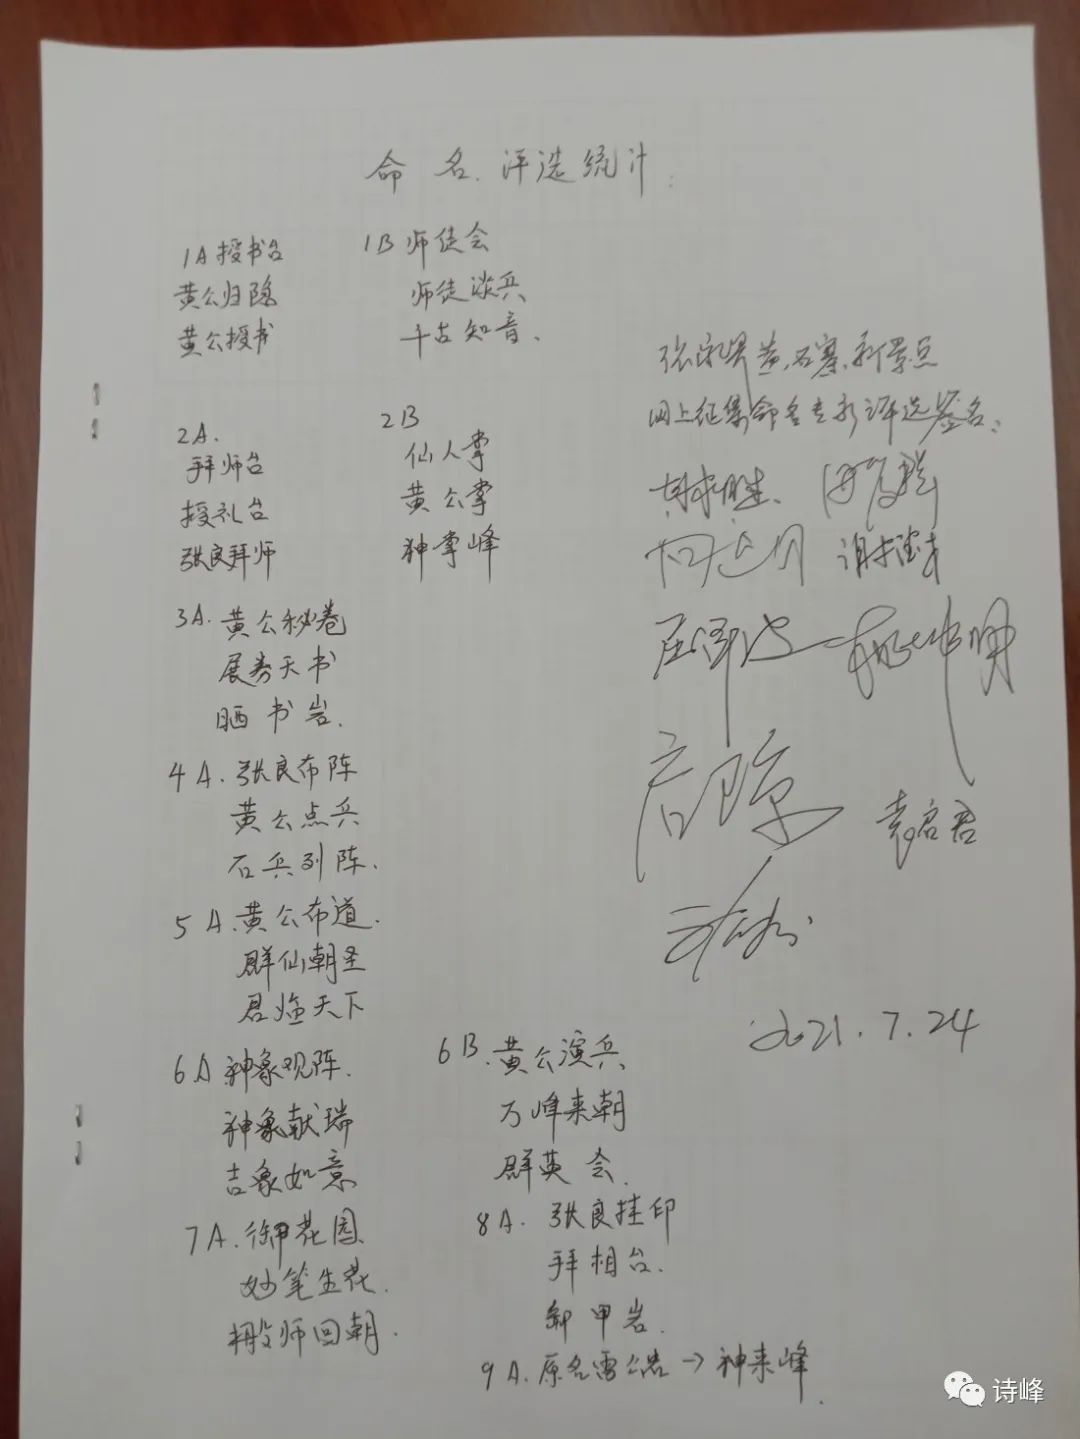 命名评选统计:
1A 授书台
黄公归隐
黄公授书
1B 师徒会
师徒谈兵
千古知音.
2A.
拜师台
授礼台
张良拜师
2B
仙人掌
黄公掌
神掌峰
3A. 黄公秘卷
展卷天书
晒书岩.
4A. 张良布阵
黄公点兵
石兵列阵.
5A. 黄公布道.
群仙朝圣
君临天下
6A 神象观阵.
神象献瑞
吉象如意
6B. 黄公演兵
万峰来朝
群英会.
7A. 御花园
妙笔生花.
搬师回朝.
8A. 张良挂印
拜相台.
卸甲岩.
9A. 原名雷公岩→神来峰.
张家界黄石寨新景点
网上征集命名专家评选签名:
袁启君
2021.7.24
诗峰